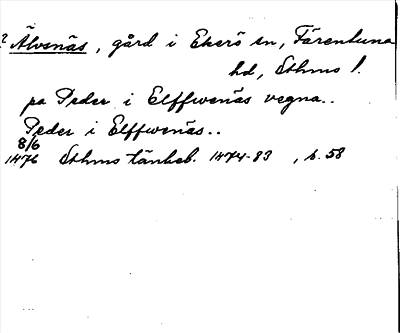 ? Älvsnäs, gård i Ekerö sn, Färentuna
hd, Sthms l.
pa Peder i Elffwenäs vegna..
Peder i Elffwenäs..
8/6
1476 Sthms tänkeb. 1474-83, s. 58